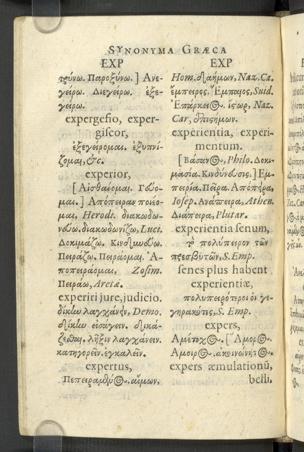 SYNONYMA GRÆCA
EXP
τρύνω. Παροξύνω. ] Ἀνε-
γείρω. Διεγείρω. ἐξε-
γείρω.
expergefio, exper-
giscor,
ἐξεγείρομαι. ἐξυπνί-
ζομαι, &c.
experior,
[ Αἰσθάνομαι.
μαι. ] Ἀπόπειραν ποιέο-
μαι, Herodt. διακωδω-
νέω, διακωδωνίζω, Luci.
Δοκιμάζω. Κινδυνεύω.
Πειράζω. Πειράομαι. Ἀ-
ποπειράομαι, Zosim.
Πειράω, Aretæ.
experiri jure, judicio.
δίκαν λαγχάνειν, Demo.
δίκαν εἰσάγειν, δικά-
ζεσθαι, λῆξιν λαγχάνειν.
κατηγορεῖν. ἐγκαλεῖν.
expertus,
Πεπειραμένος. αἵμων.
EXP
Hom. δαήμων, Naz. Ca.
ἔμπειρος. Ἔμπαιος, Suid.
ἴστωρ, Naz.
Car, ἐπιστήμων.
experientia, experi-
mentum.
[ Βάσανος, Philo. Δοκι-
μασία. Κινδύνευσις. ] Ἐμ-
πειρία. Πεῖρα. Ἀπόπειρα,
Iosep. Ἀνάπειρα, Athen.
Διάπειρα, Plutar.
experientia senum,
τὸ πολύπειρον τῶν
πρεσβυτῶν, S. Emp.
senes plus habent
experientiæ,
πολυπειρότεροι οἱ γε-
γηρακότες, S. Emp.
expers,
Ἀμέτοχος. [ Ἄμορος.
Ἄμοιρος. ἀκοινώνητος.
expers æmulationũ,
belli,